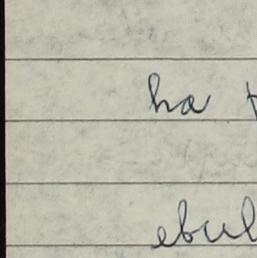 ha
ebul